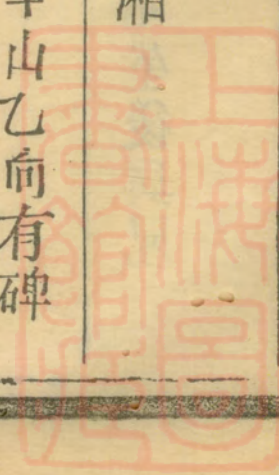 湘
山乙向有碑
上海圖
書館印